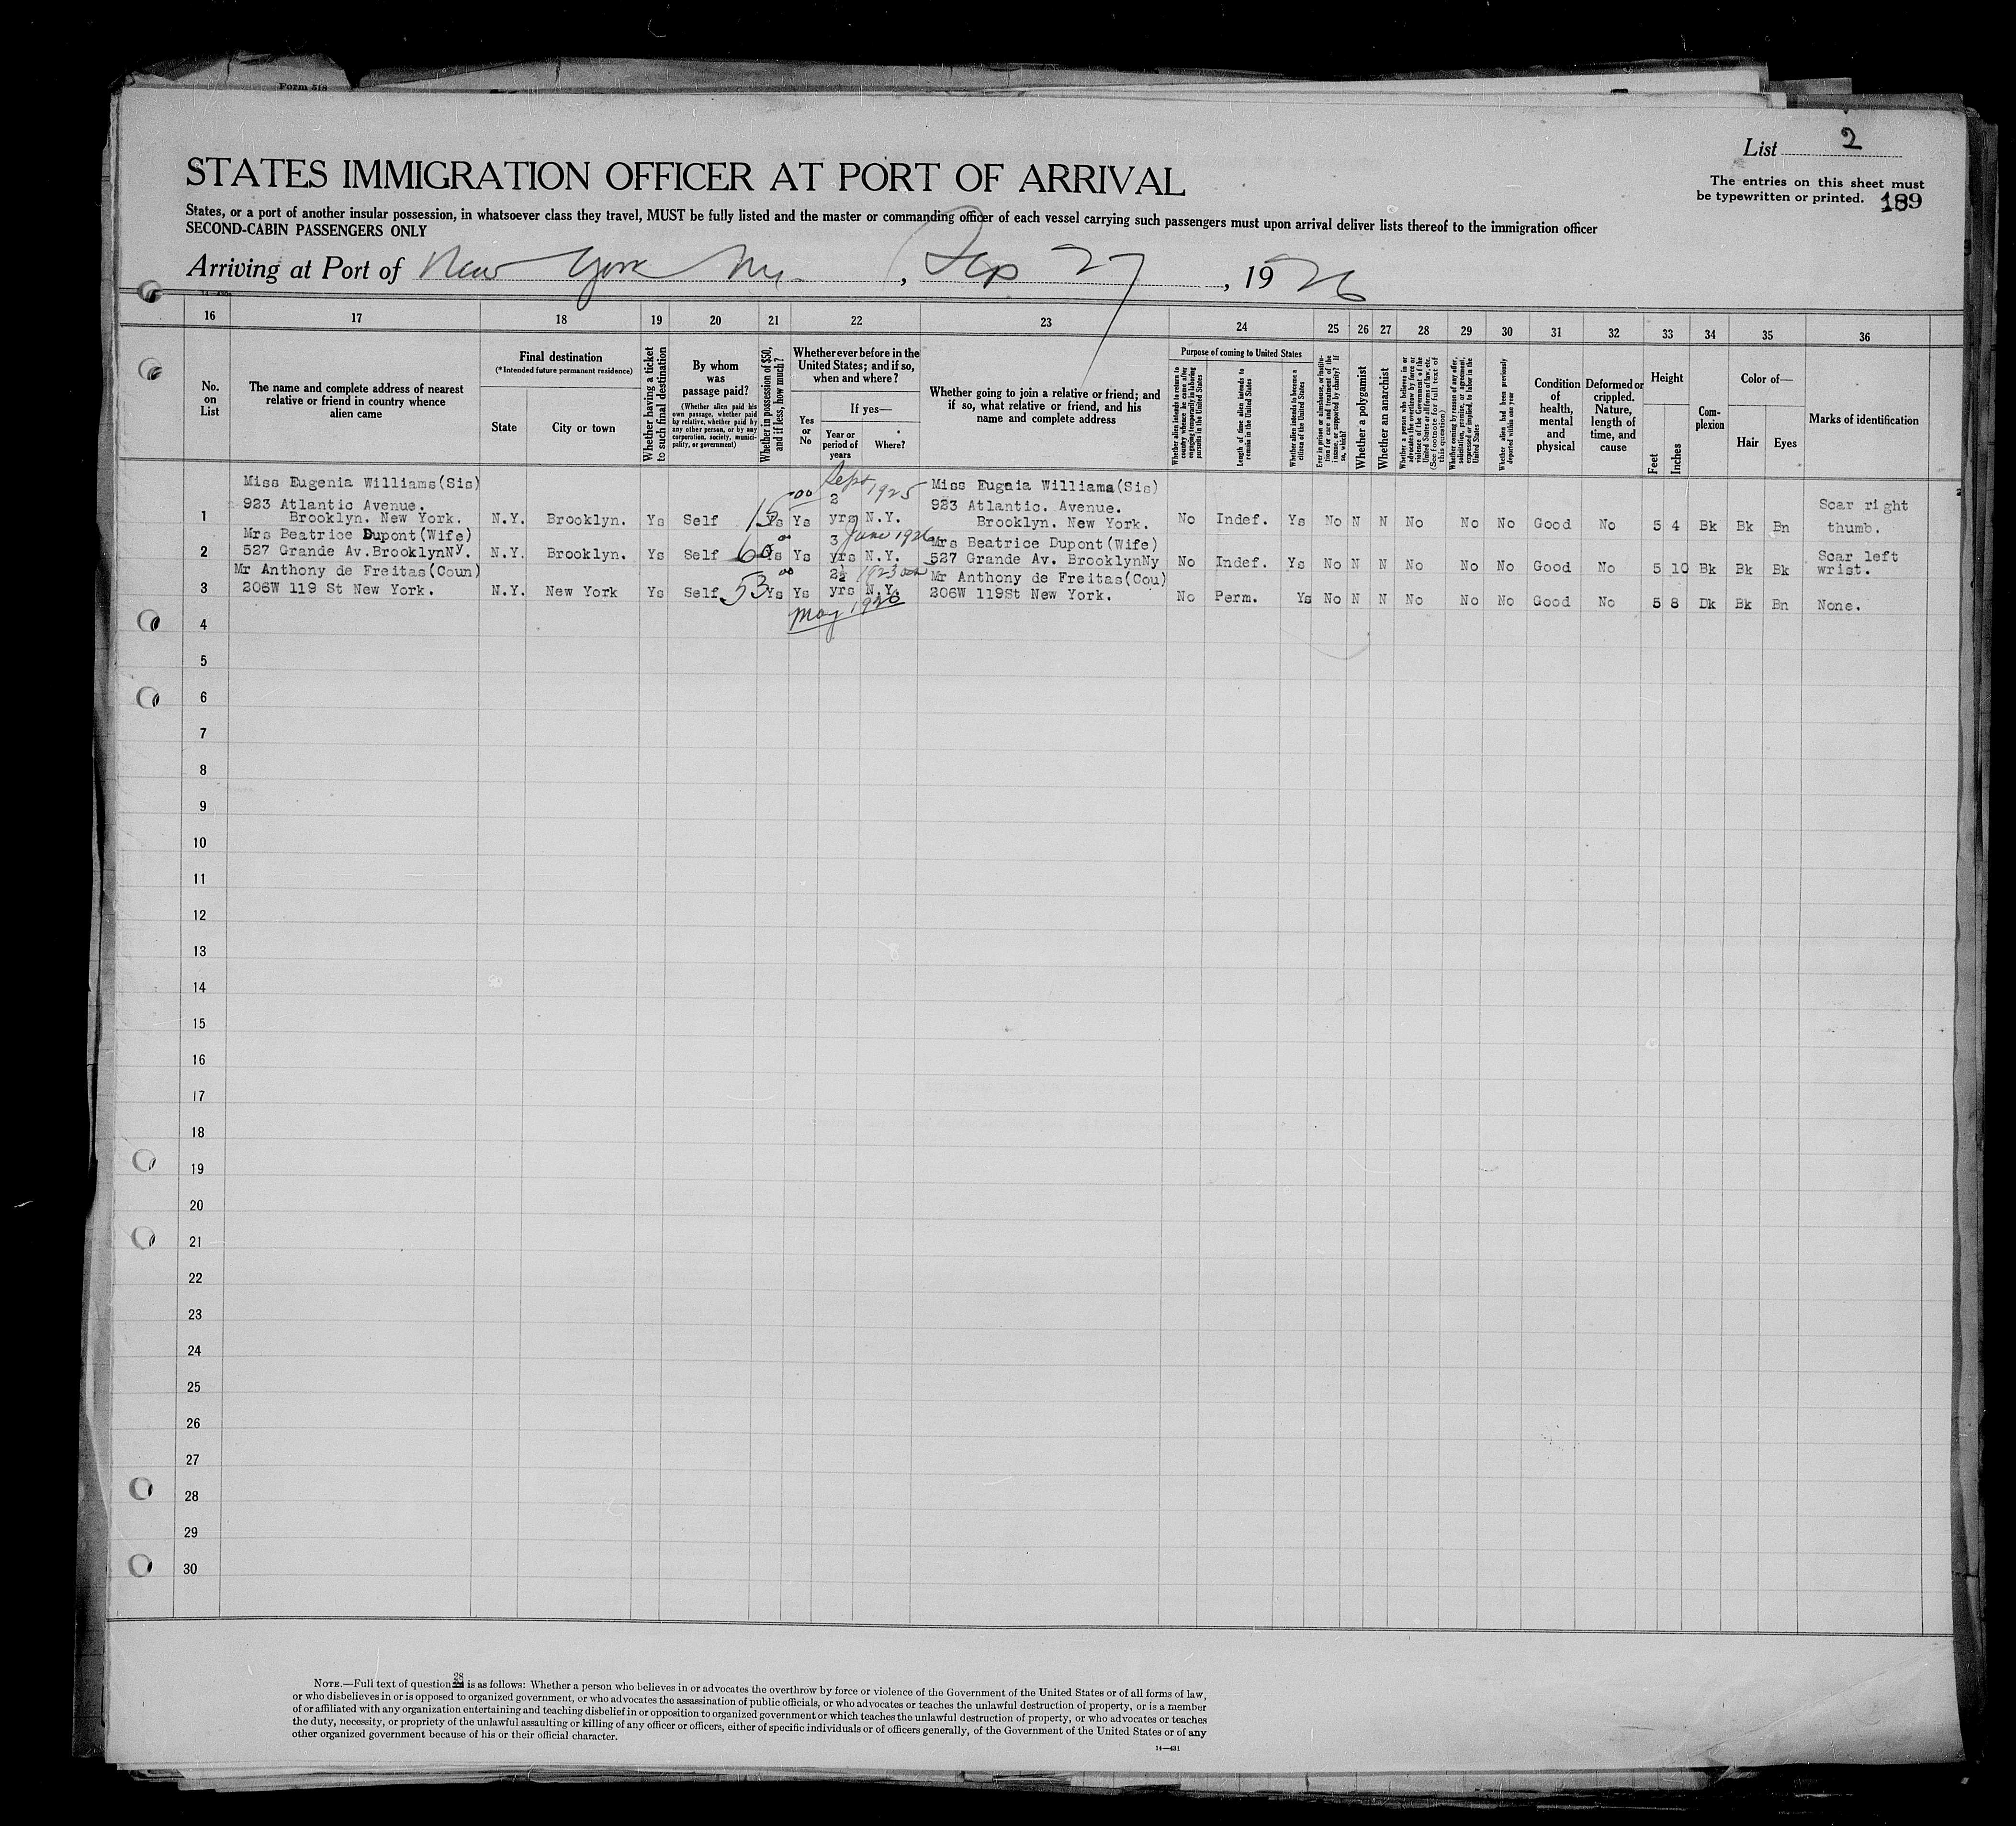 Form 518
List 2
The entries on this sheet must
be typewritten or printed. 189
STATES IMMIGRATION OFFICER AT PORT OF ARRIVAL
States, or a port of another insular possession, in whatsoever class they travel, MUST be fully listed and the master or commanding officer of each vessel carrying such passengers must upon arrival deliver lists thereof to the immigration officer
SECOND-CABIN PASSENGERS ONLY
Arriving at Port of New York Ny. , Sep 27, 1926
16 17 18 19 20 21 22 23 24 25 26 27 28 29 30 31 32 33 34 35 36
No.
on
List
The name and complete address of nearest
relative or friend in country whence
alien came
Final destination
(*Intended future permanent residence)
State
City or town
Whether having a ticket
to such final destination
By whom
was
passage paid?
(Whether alien paid his
own passage, whether paid
by relative, whether paid by
any other person, or by any
corporation, society, munici-
pality, or government)
Whether in possession of $50,
and if less, how much?
Whether ever before in the
United States; and if so,
when and where?
Yes
or
No
If yes—
Year or
period of
years
Where?
Whether going to join a relative or friend; and
if so, what relative or friend, and his
name and complete address
Purpose of coming to United States
Whether alien intends to return to
country whence he came after
engaging temporarily in laboring
pursuits in the United States
Length of time alien intends to
remain in the United States
Whether alien intends to become a
citizen of the United States
Ever in prison or almshouse, or institu-
tion for care and treatment of the
insane, or supported by charity? If
so, which?
Whether a polygamist
Whether an anarchist
Whether a person who believes in or
advocates the overthrow by force or
violence of the Government of the
United States or all forms of law, etc.
(See footnote for full text of
this question)
Whether coming by reason of any offer,
solicitation, promise, or agreement,
expressed or implied, to labor in the
United States
Whether alien had been previously
deported within one year
Condition
of
health,
mental
and
physical
Deformed or
crippled.
Nature,
length of
time, and
cause
Height
Feet
Inches
Com-
plexion
Color of—
Hair
Eyes
Marks of identification
Miss Eugenia Williams(Sis) Sept 1925 Miss Eugaia Williams(Sis)
923 Atlantic Avenue. 00 2 923 Atlantic. Avenue. Scar right
1 Brooklyn. New York. N.Y. Brooklyn. Ys Self 15 Ys Ys yrs N.Y. Brooklyn. New York. No Indef. Ys No N N No No No Good No 5 4 Bk Bk Bn thumb.
Mrs Beatrice Dupont(Wife) 00 3 June 1926 Mrs Beatrice Dupont(Wife) Scar left
2 527 Grande Av.BrooklynNy. N.Y. Brooklyn. Ys Self 60 Ys Ys yrs N.Y. 527 Grande Av. BrooklynNy No Indef. Ys No N N No No No Good No 5 10 Bk Bk Bk wrist.
Mr Anthony de Freitas(Coun) 00 2½ 1923 Mr Anthony de Freitas(Cou)
3 206W 119 St New York. N.Y. New York Ys Self 53 Ys Ys yrs N.Y. 206W 119St New York. No Perm. Ys No N N No No No Good No 5 8 Dk Bk Bn None.
May 1926
4
5
6
7
8
9
10
11
12
13
14
15
16
17
18
19
20
21
22
23
24
25
26
27
28
29
30
NOTE.—Full text of question 28 is as follows: Whether a person who believes in or advocates the overthrow by force or violence of the Government of the United States or of all forms of law,
or who disbelieves in or is opposed to organized government, or who advocates the assassination of public officials, or who advocates or teaches the unlawful destruction of property, or is a member
of or affiliated with any organization entertaining and teaching disbelief in or opposition to organized government or which teaches the unlawful destruction of property, or who advocates or teaches
the duty, necessity, or propriety of the unlawful assaulting or killing of any officer or officers, either of specific individuals or of officers generally, of the Government of the United States or of any
other organized government because of his or their official character.
14—431